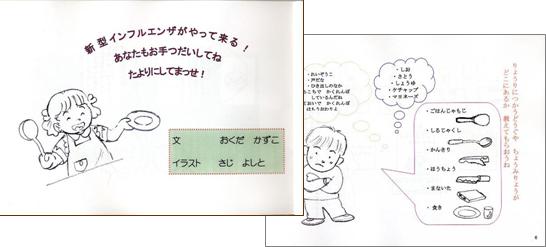 新型インフルエンザがやって来る！
あなたもお手つだいしてね
たよりにしてまっせ！
文　おくだ　かずこ
イラスト　さじ　よしと
りょうりにつかうどうぐや　ちょうみりょうが
どこにあるか　教えてもらおうね
・れいぞうこ
・戸だな
・ひき出しのなか
・しお
・さとう
・しょうゆ
・ケチャップ
・マヨネーズ
・ごはんじゃもじ
・しるじゃくし
・かんきり
・ほうちょう
・まないた
・食き
6